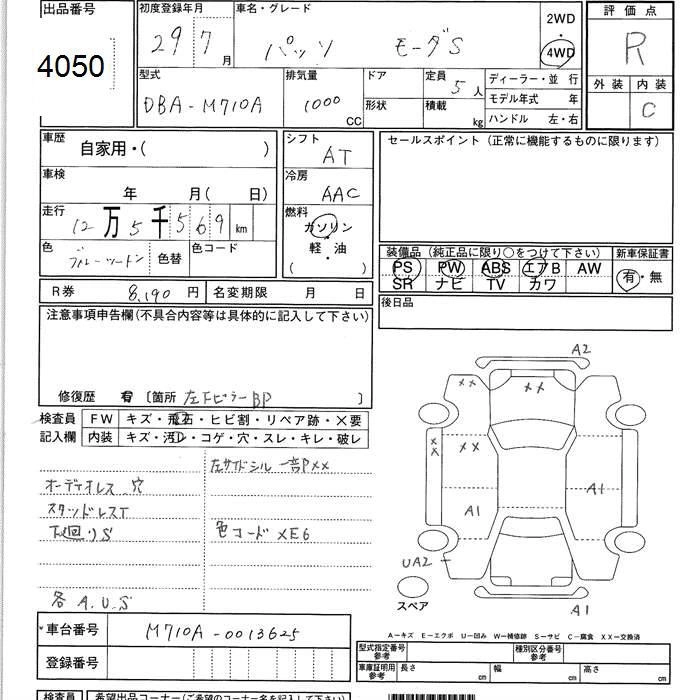 出品番号
4050
初度登録年月
29 7月
車名・グレード
パッソ モーダS
2WD
・
4WD
評価点
R
外装 内装
C
型式
DBA-M710A
排気量
1000 CC
ドア
形状
定員 5人
積載 kg
ディーラー・並行
モデル年式 年
ハンドル 左・右
車歴
自家用・( )
車検
年 月( 日)
走行
12万5千569 km
色
ブルーツートン
色替
色コード
シフト
AT
冷房
AAC
燃料
ガソリン
・
軽・油
( )
セールスポイント(正常に機能するものに限ります)
装備品(純正品に限り○をつけて下さい)
PS PW ABS エアB AW
SR ナビ TV カワ
新車保証書
有・無
R券 8,190円
名変期限 月 日
後日品
注意事項申告欄(不具合内容等は具体的に記入して下さい)
修復歴 有 〔箇所 左下ピラーBP 〕
検査員
記入欄
FW キズ・飛石・ヒビ割・リペア跡・×要
内装 キズ・汚・コゲ・穴・スレ・キレ・破レ
左サイドシル 一部P××
オーディオレス 穴
スタッドレスT
下廻りS
色コード XE6
各 A.U.S
A2
××
××
××
××
A1
A1
UA2
A1
スペア
*車台番号 M710A-0013625
登録番号
A-キズ E-エクボ U-凹み W-補修跡 S-サビ C-腐食 XX-交換済
型式指定番号
参考
種別区分番号
参考
車庫証明用
参考
長さ cm
幅 cm
高さ cm
検査員
希望出品コーナー(ご希望のコーナー名を記入下さい)